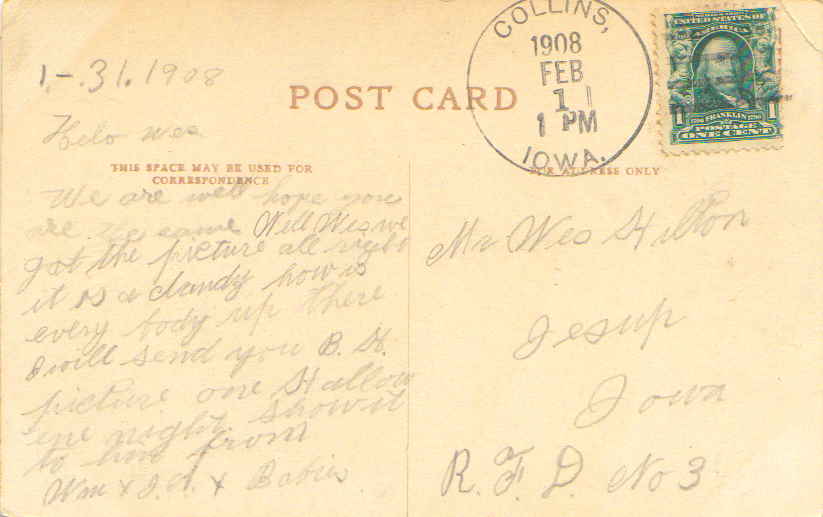 1.-.31.1908
Helo Wes
POST CARD
THIS SPACE MAY BE USED FOR
CORRESPONDENCE
We are well hope you
are the same Well Wes we
got the picture all
it is a dandy how is
every body up there
I will send you B. H.
picture one Hallow
ene night show it
to him from
Wm & J. A. & Babies
COLLINS,
1908
FEB
1
1 PM
IOWA.
UNITED STATES OF
AMERICA
1 1
1706 FRANKLIN 1790
POSTAGE
ONE CENT
FOR ADDRESS ONLY
Mr Wes Hilton
Jesup
Iowa
R. F. D. No 3